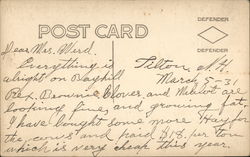 POST CARD
DEFENDER
DEFENDER
Dear Mrs. Wird.
Tilton, N.H.
Everything is
March 5-31
alright on Bayhill
Rex, Brownie, Clover and Melvot are
looking fine and growing fat.
I have bought some more Hay for
the cows and paid $18. per ton
which is very cheap this year.